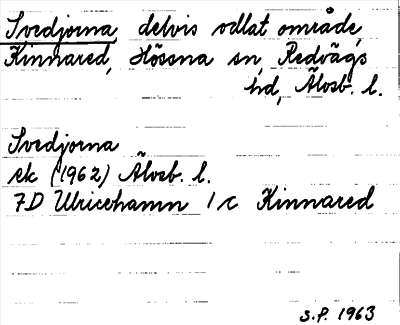 Svedjorna, delvis odlat område,
Kinnared, Hössna sn, Redvägs
hd, Älvsb. l.
Svedjorna
ek (1962) Älvsb. l.
7D Ulricehamn 1c Kinnared
S.P. 1963